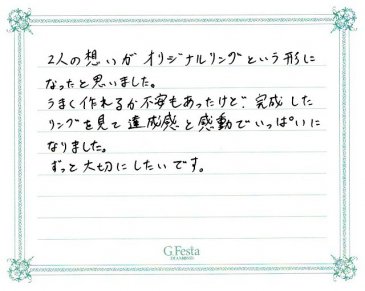 2人の想いがオリジナルリングという形に
なったと思いました。
うまく作れるか不安もあったけど、完成した
リングを見て達成感と感動でいっぱいに
なりました。
ずっと大切にしたいです。
G.Festa